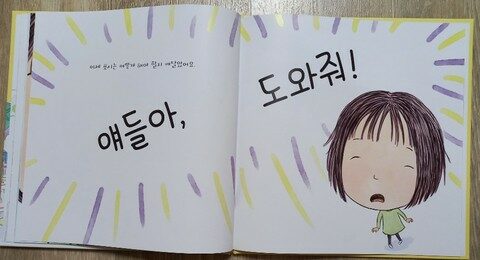 이제 무시는 어떻게 해야 할지 깨달았어요.
얘들아,
도와줘!